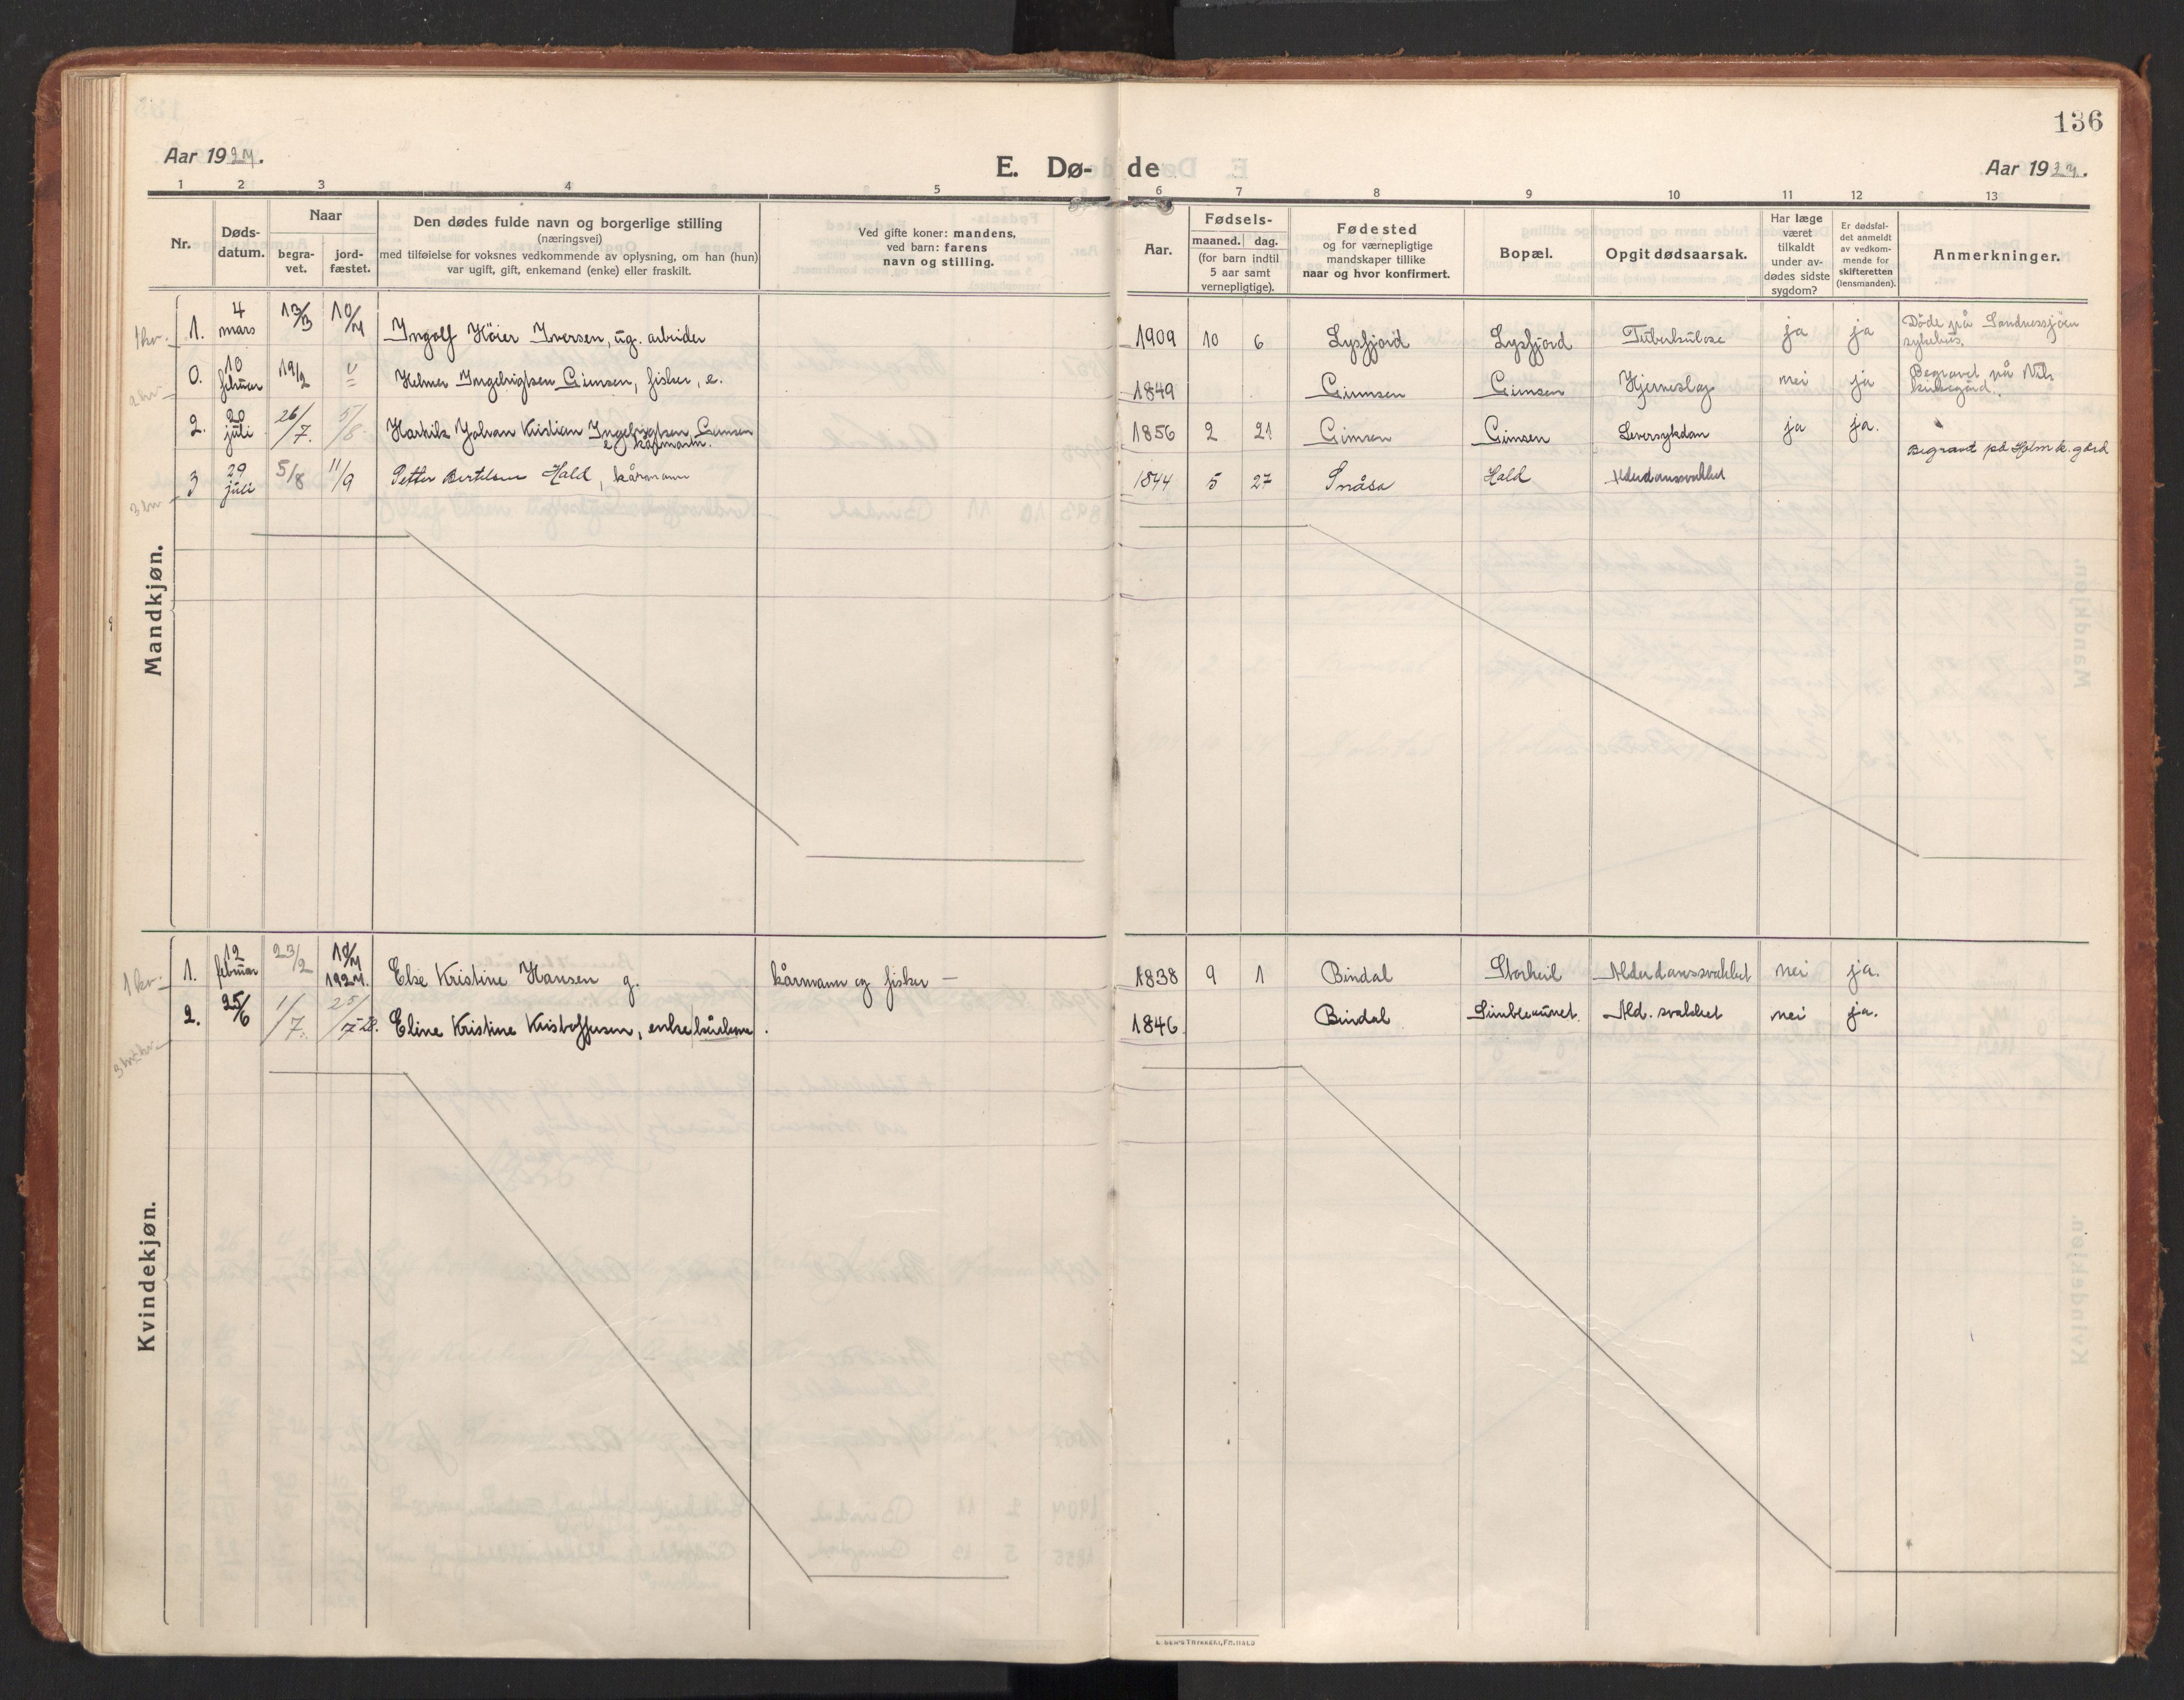 136
Aar 1924.
E. Dø- de
Aar 1924.
1 2 3 4 5 6 7 8 9 10 11 12 13
Nr.
Døds-
datum.
Naar
begra-
vet.
jord-
fæstet.
Den dødes fulde navn og borgerlige stilling
(næringsvei)
med tilføielse for voksnes vedkommende av oplysning, om han (hun)
var ugift, gift, enkemand (enke) eller fraskilt.
Ved gifte koner: mandens,
ved barn: farens
navn og stilling.
Aar.
Fødsels-
maaned. dag.
(for barn indtil
5 aar samt
vernepligtige).
Fødested
og for værnepligtige
mandskaper tillike
naar og hvor konfirmert.
Bopæl.
Opgit dødsaarsak.
Har læge
været
tilkaldt
under av-
dødes sidste
sygdom?
Er dødsfal-
det anmeldt
av vedkom-
mende for
skifteretten
(lensmanden).
Anmerkninger.
Mandkjøn.
1kv. 1. 4 mars 13/3 10/4 Ingolf Höier Iversen, ug. arbeider 1909 10 6 Lysfjord Lysfjord Tuberkulose ja ja Döde på Sandnessjöen sykehus.
0. 10 februar 19/2 Helmer Ingebrigtsen Gimsen, fisker, e. 1849 Gimsen Gimsen Hjerneslag nei ja Begravet på Vik kirkegård.
2. 20 juli 26/7. 5/8 Johan Kristian Ingebrigtsen Gimsen kårmann. 1856 2 21 Gimsen Gimsen Leversykdom ja ja.
3 29 juli 5/8 11/9 Petter Bertilsen Hald, kårmann 1844 5 27 Snåsa Hald Alderdomssvakhet Begravet på Holm k.gård
Kvindekjøn.
1kv. 1. 12 februar 23/2 10/4 1924. Else Kristine Hansen g. kårmann og fisker — 1838 9 1 Bindal Storheil Alderdomssvakhet nei ja.
2. 25/6 1/7. Eline Kristine Kristoffersen, enke 1846. Bindal Ald. svakhet nei ja.